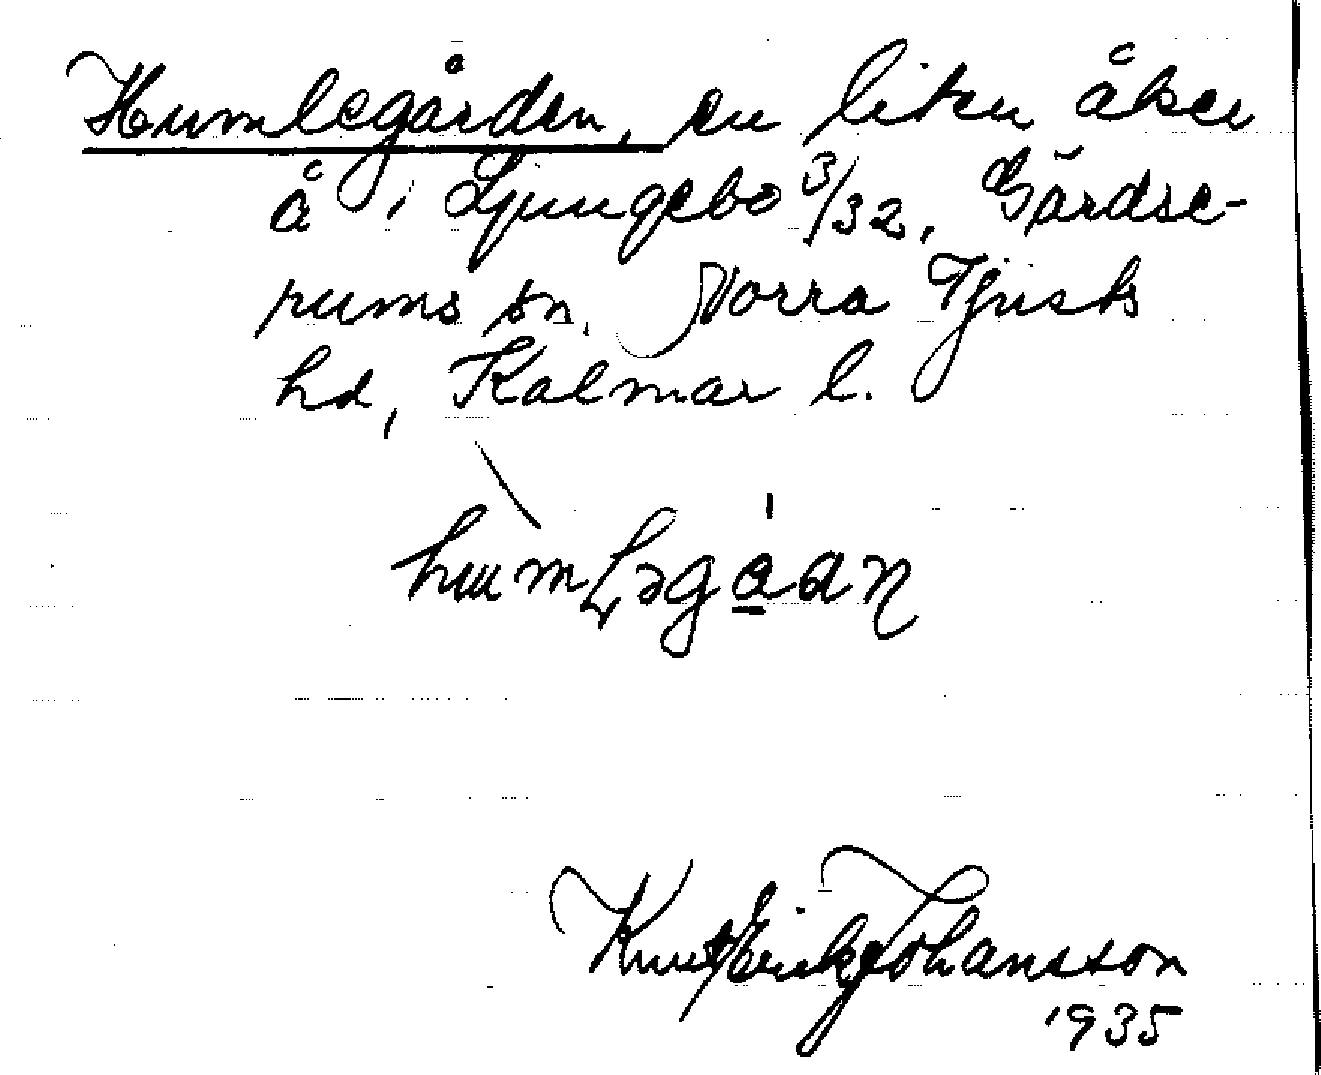 Humlegården, en liten åker
å i Ljungebo 3/32, Gärdse-
rums sn. Norra Tjusts
hd, Kalmar l.
Knut Erik Johansson
1935